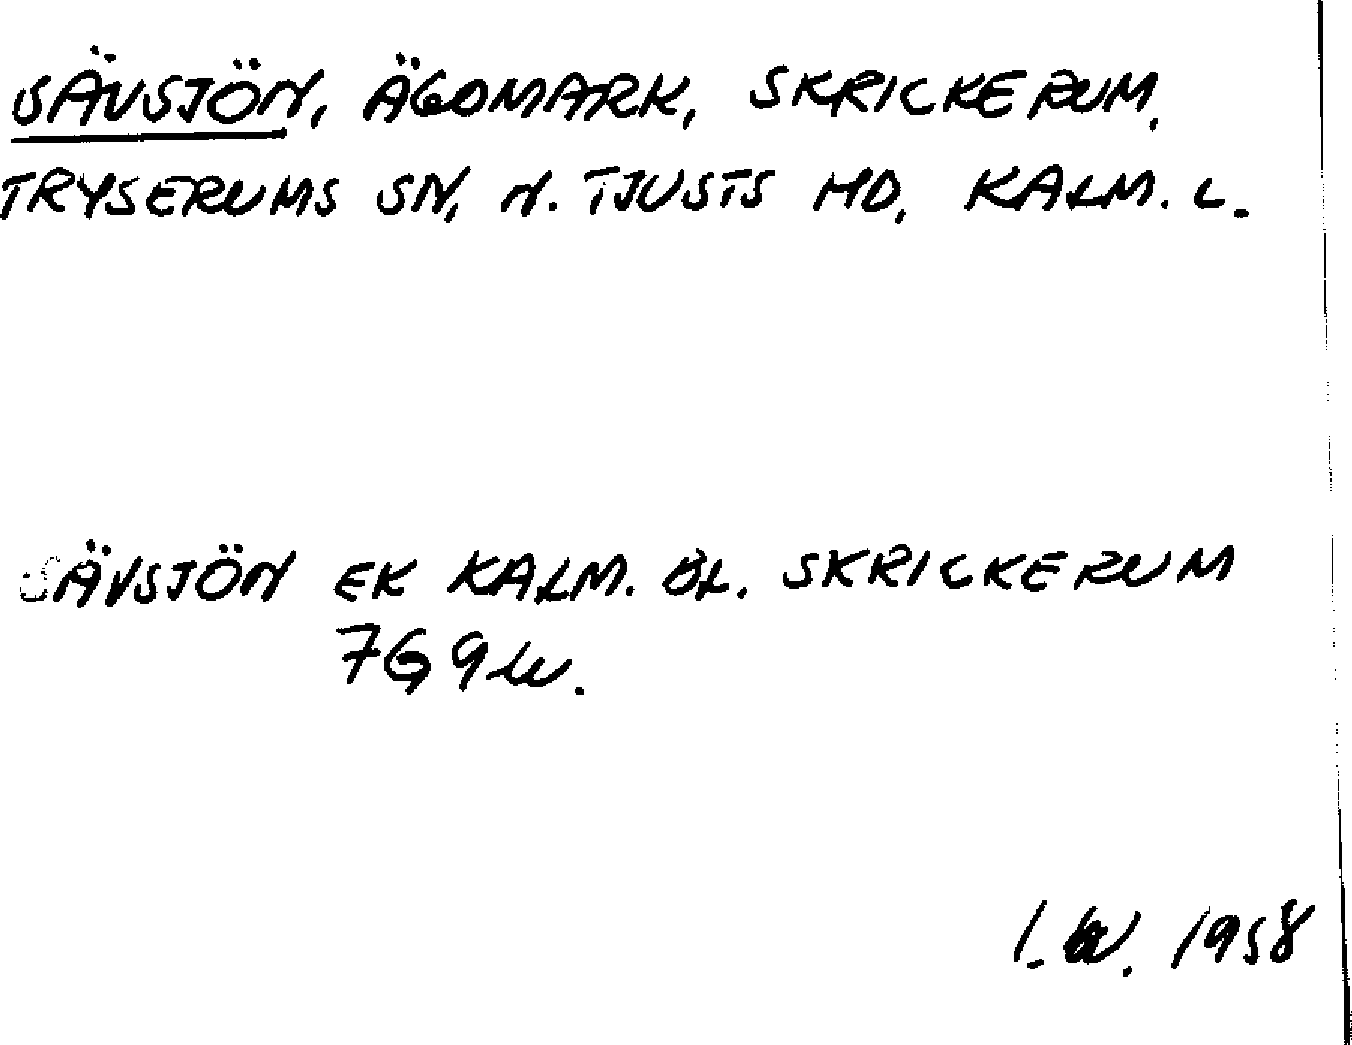 SÄVSJÖN, ÄGOMARK, SKRICKERUM,
TRYSERUMS SN, N. TJUSTS HD, KALM. L.
SÄVSJÖN EK KALM. BL. SKRICKERUM
7G 9
I. W. 1958